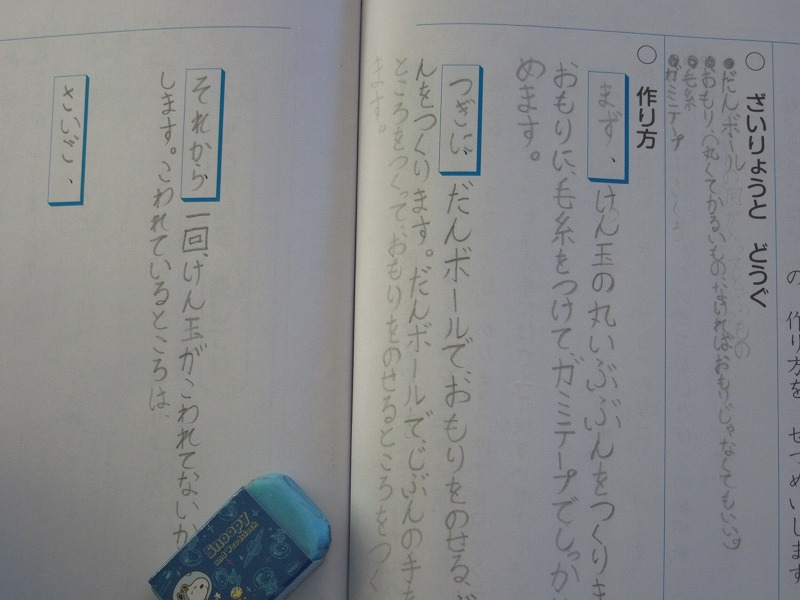 の 作り方を せつめいします
○ ざいりょうと どうぐ
●だんボール
●おもり、(丸くてかるいものなければおもりじゃなくてもいい。)
●毛糸
●ガミテープ
○ 作り方
まず、けん玉の丸いぶぶんをつくりま
おもりに、毛糸をつけて、ガミテープでしっか
めます。
つぎに、だんボールで、おもりをのせる、ぶ
んをつくります。だんボールで、じぶんの手を
ところをつくって、おもりをのせるところをつく
ます。
それから、一回、けん玉がこわれてないか
します。こわれているところは、
さいごに、
SNOOPY